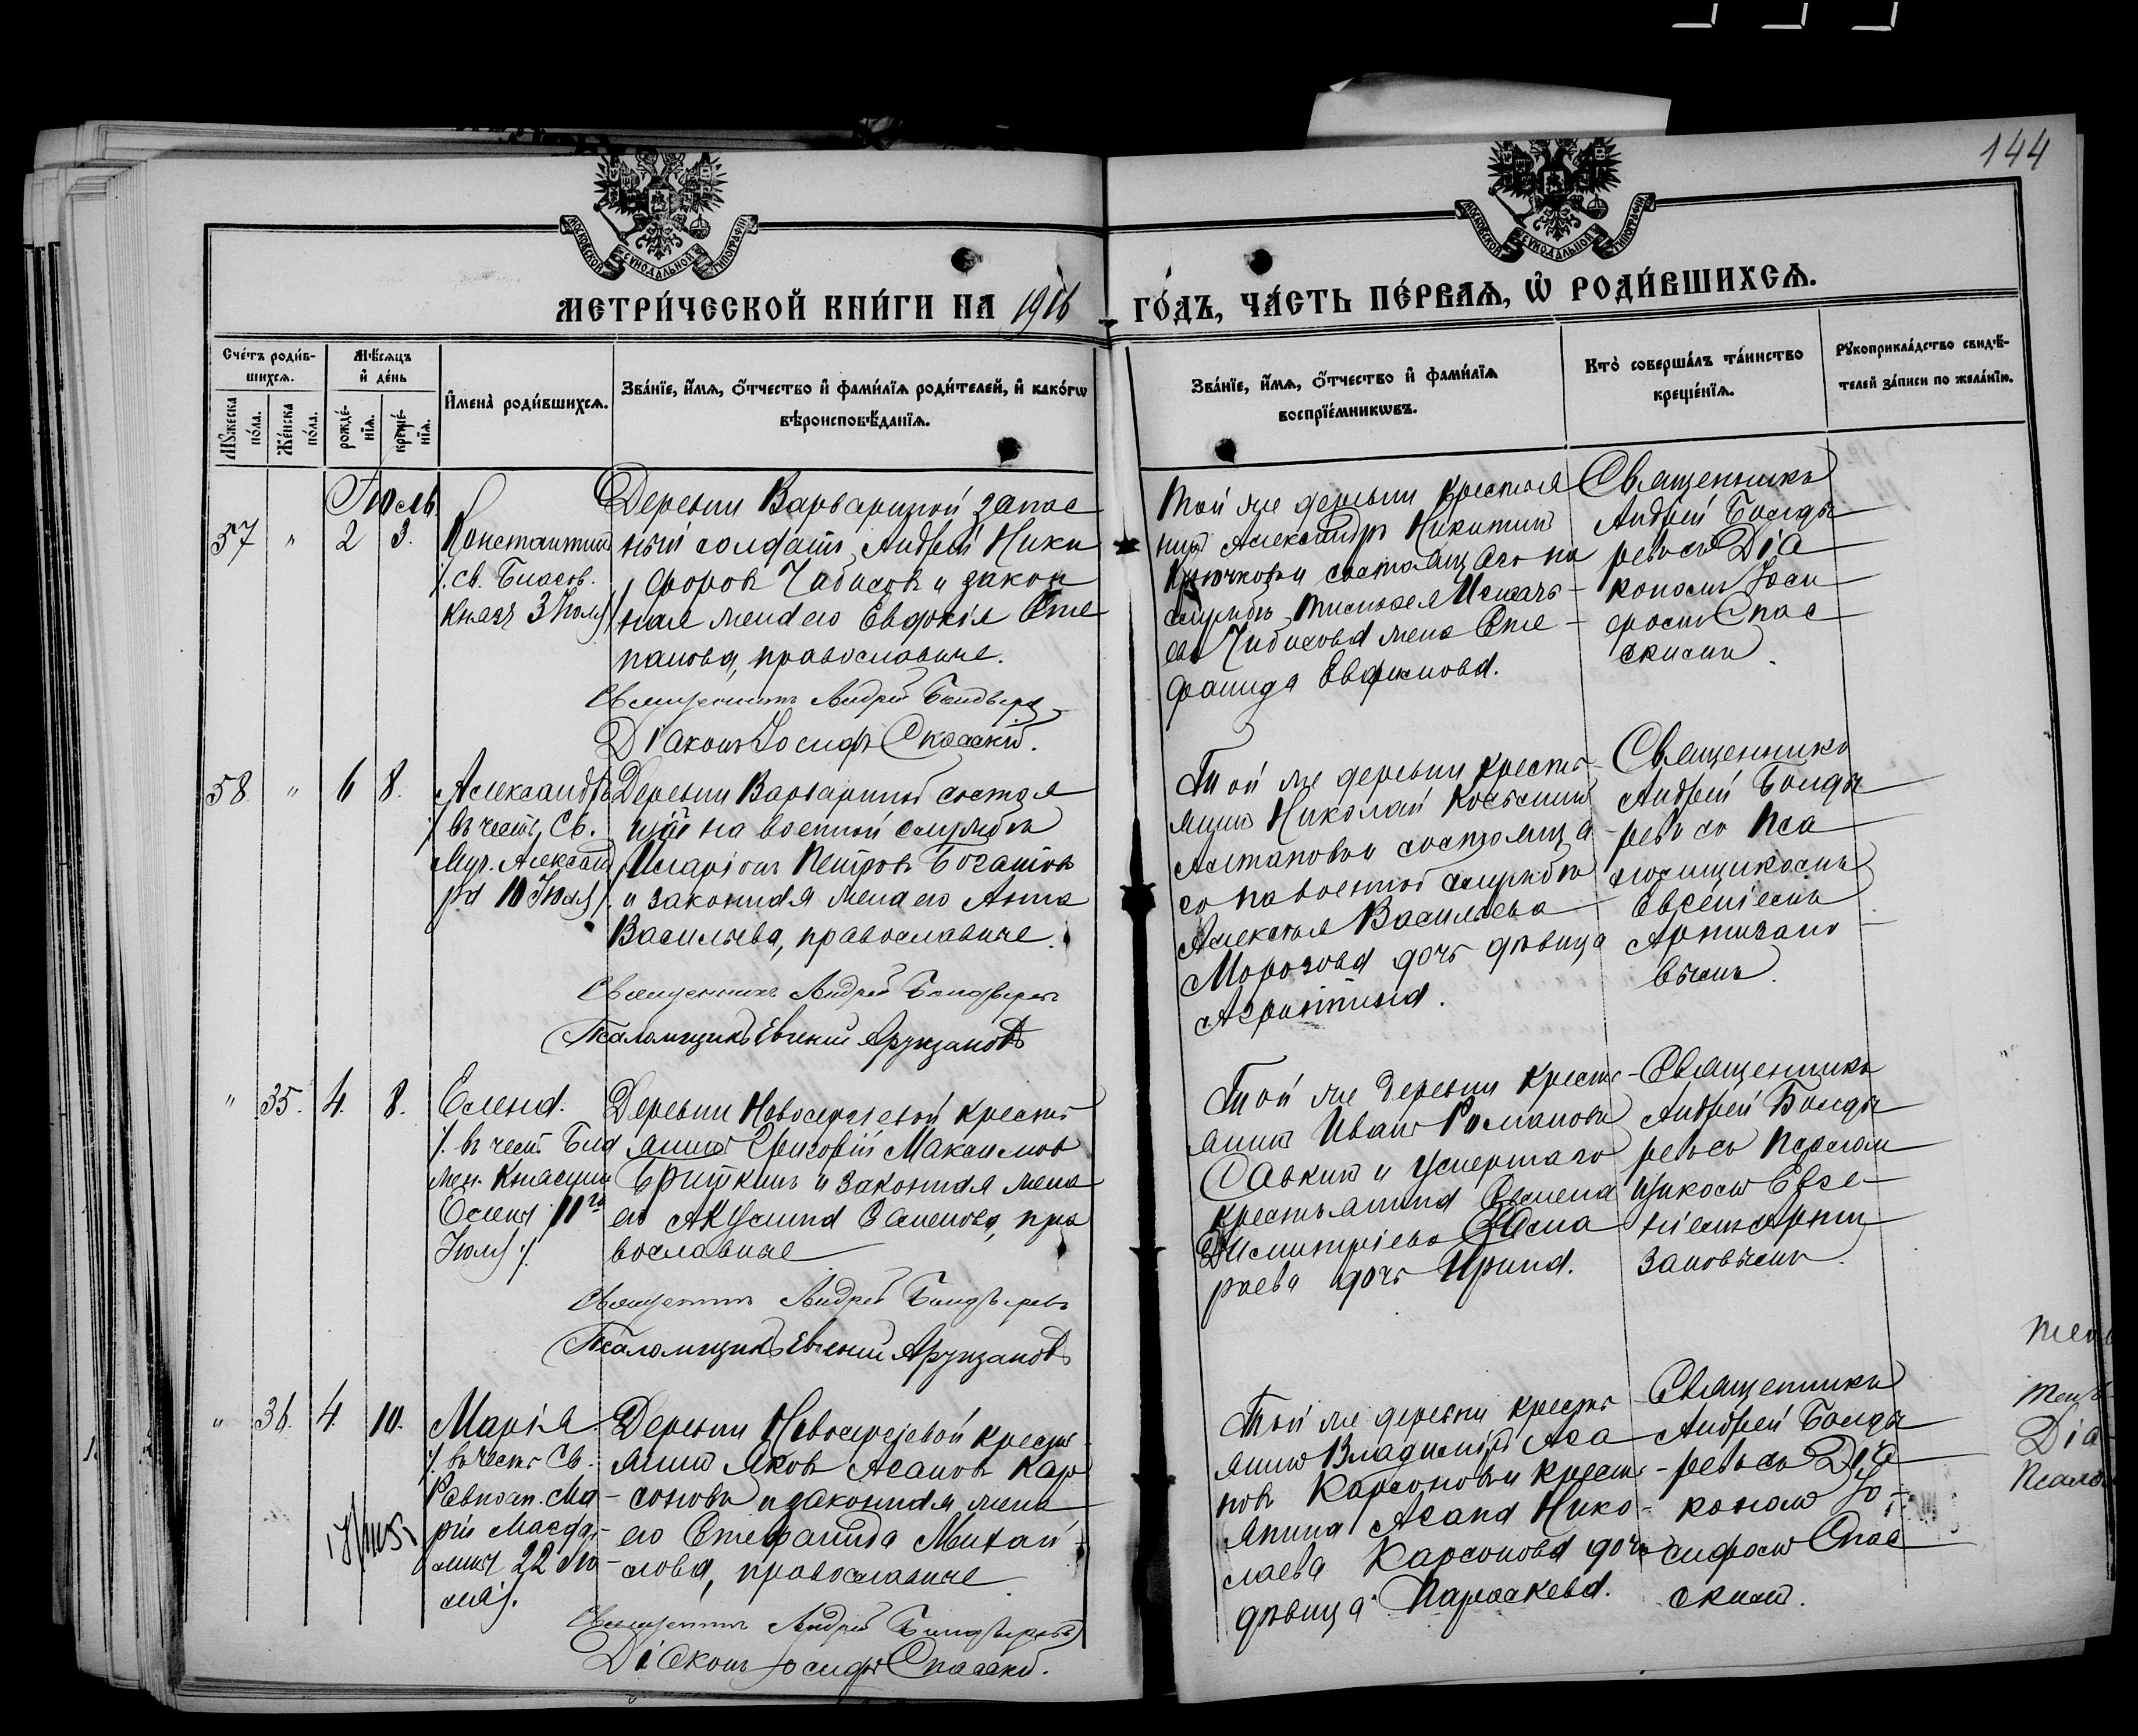 144
МОСКОВСКОЙ СѴНОДАЛЬНОЙ ТИПОГРАФІИ
МОСКОВСКОЙ СѴНОДАЛЬНОЙ ТИПОГРАФІИ
МЕТРИ́ЧЕСКОЙ КНИ́ГИ НА 1916 ГО́ДЪ, ЧА́СТЬ ПЕ́РВАѦ, Ѽ РОДИ́ВШИХСѦ.
Сче́тъ роди́в-
шихсѧ.
Мꙋ́жеска по́ла.
Же́нска по́ла.
Мѣ́сѧцъ
и҆ де́нь
рожде́-нїѧ.
креще́-нїѧ.
И҆мена̀ роди́вшихсѧ.
Зва́нїе, и҆́мѧ, ѻ҆́тчество и҆ фами́лїѧ роди́телей, и҆ како́гѡ
вѣроисповѣ́данїѧ.
Зва́нїе, и҆́мѧ, ѻ҆́тчество и҆ фами́лїѧ
воспрїе́мникѡвъ.
Кто̀ соверша́лъ та́инство
креще́нїѧ.
Рꙋкоприкла́дство свидѣ́-
телей за́писи по жела́нїю.
Іюль
57 " 2 3.
Константинъ
/. св. Благов.
Князя 3 Іюля /.
Деревни Варвариной запас
ный солдатъ Андрей Ники
форовъ Чабисовъ и закон
ная жена его Евдокія Сте
панова, православные.
Священникъ Андрей Болдыревъ
Діаконъ Іосифъ Спасскій.
Той же деревни крестья
нинъ Александръ Никитинъ
состоящаго на
службѣ
жена Сте
фанида Евфимова.
Священникъ
Андрей Болды
ревъ съ Діа
кономъ Іоси
фомъ Спас
скимъ.
58 " 6 8.
Александръ
/. въ честь Св.
Муч. Александ
ра 10 Іюля /.
Деревни Варвариной состоя
щій на военной службѣ
Иларіонъ Петровъ Богатовъ
и законная жена его Анна
Васильева, православные.
Священникъ Андрей Болдыревъ
Псаломщикъ Евгеній Арунзановъ
Той же деревни кресть
янинъ Николай Косьминъ
состояща
го на военной службѣ
Алексѣя Васильева
Морозова дочь дѣвица
Агриппина.
Священникъ
Андрей Болды
ревъ со Пса
ломщикомъ
Евгеніемъ
Арнизано
вымъ.
" 35. 4. 8.
Елена.
/. въ честь Бла
жен. Княгини
Елены 11го
Іюля /.
Деревни Новосергіевой кресть
янинъ Григорій Максимовъ
Бриткинъ и законная жена
его Акулина Семенова, пра
вославные
Священникъ Андрей Болдыревъ
Псаломщикъ Евгеній Арунзановъ
Той же деревни кресть
янинъ Иванъ Романовъ
Савкинъ и умершаго
крестьянина Семена
Димитріева
дочь Ирина.
Священникъ
Андрей Болды
ревъ со Псалом
щикомъ Евге
ніемъ Арни
зановымъ.
" 36. 4. 10.
Марія.
/. въ честь Св.
Равноап. Ма
ріи Магда
лины 22 Ію
ля /.
Деревни Новосергіевой кресть
янинъ Яковъ Агаповъ Кар
соновъ и законная жена
его Стефанида Михай
лова, православные
Священникъ Андрей Болдыревъ
Діаконъ Іосифъ Спасскій.
Той же деревни кресть
янинъ Владиміръ Ага
повъ Карсоновъ и кресть
янина Агапа Нико
лаева Карсонова дочь
дѣвица Параскева.
Священникъ
Андрей Болды
ревъ со Діа
кономъ Іо
сифомъ Спас
скимъ.
Діа
Псалом